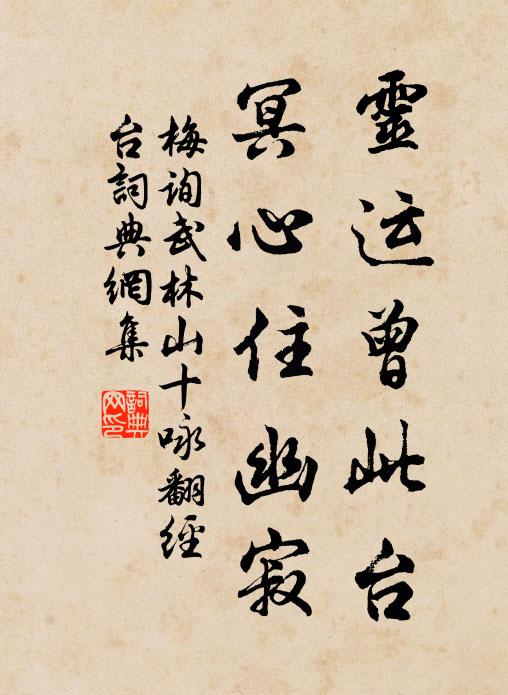 靈运曾此台
冥心住幽寂
梅询武林山十咏翻經
台詞典網集
詞典网印